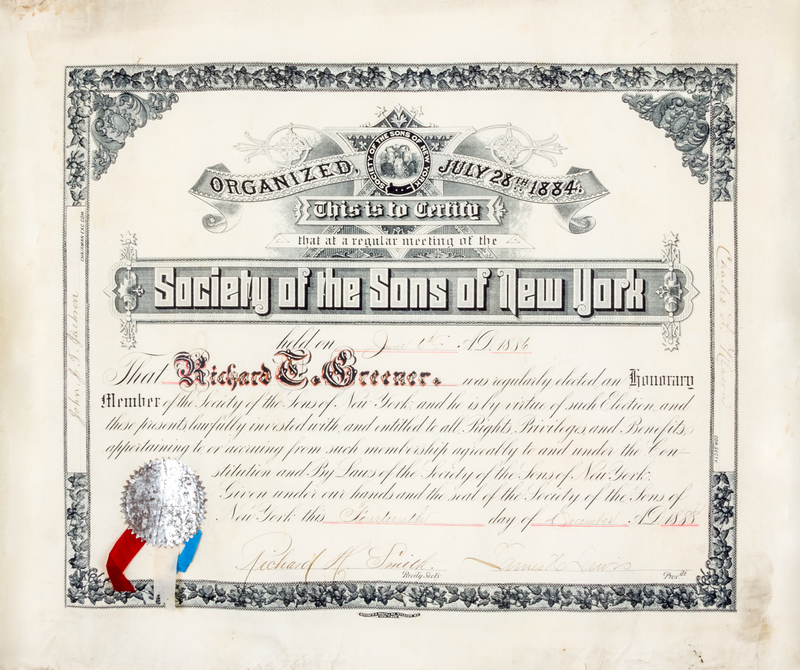 SOCIETY OF THE SONS OF NEW YORK
ORGANIZED, JULY 28TH 1884.
This is to Certify
that at a regular meeting of the
Society of the Sons of New York
held on June A.D. 1886
That Richard T. Greener. was regularly elected an Honorary
Member of the Society of the Sons of New York and he is by virtue of such Election and
these presents lawfully invested with and entitled to all Rights, Privileges and Benefits,
appertaining to or accruing from such membership agreeably to and under the Con-
stitution and By Laws of the Society of the Sons of New York.
Given under our hands and the seal of the Society of the Sons of
New York this Fourteenth day of December A.D. 1888
Richard H. Smith James W.
Recdg Sect. Presdt.
John J. Jackson
CHAIRMAN EXC. COM.
Charles
COR. SECTY.